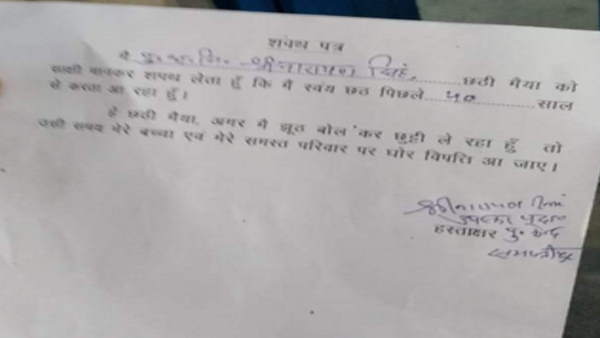 शपथ पत्र
मै पु. अ. नि. श्रीनारायण सिंह, छठी मैया को
साक्षी मानकर शपथ लेता हूँ कि मै स्वंय छठ पिछले...५०...साल
से करता आ रहा हूँ।
हे छठी मैया, अगर मै झूठ बोल कर छुट्टी ले रहा हूँ तो
उसी समय मेरे बच्चा एवं मेरे समस्त परिवार पर घोर विपति आ जाए।
श्रीनारायण सिंह
हस्ताक्षर पु० केन्द्र